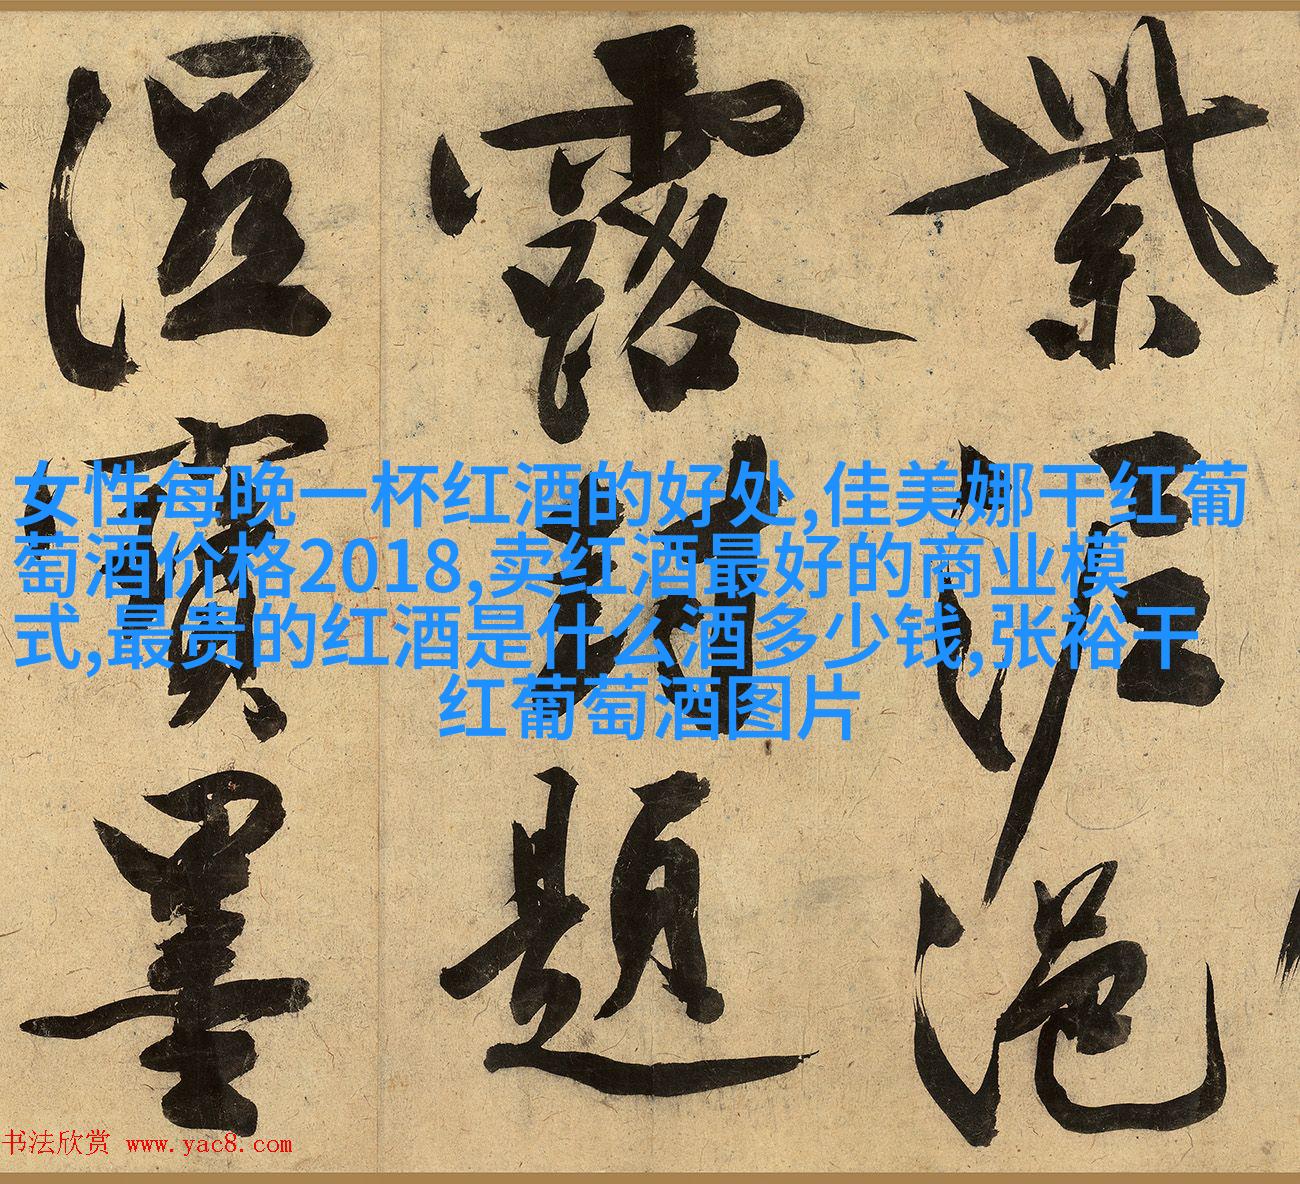 紫泥浥
露封題
濕寶墨
女性每晚一杯红酒的好处,佳美娜干红葡
萄酒价格2018,卖红酒最好的商业模
式,最贵的红酒是什么酒多少钱,张裕干
红葡萄酒图片
书法欣赏 www.yac8.com